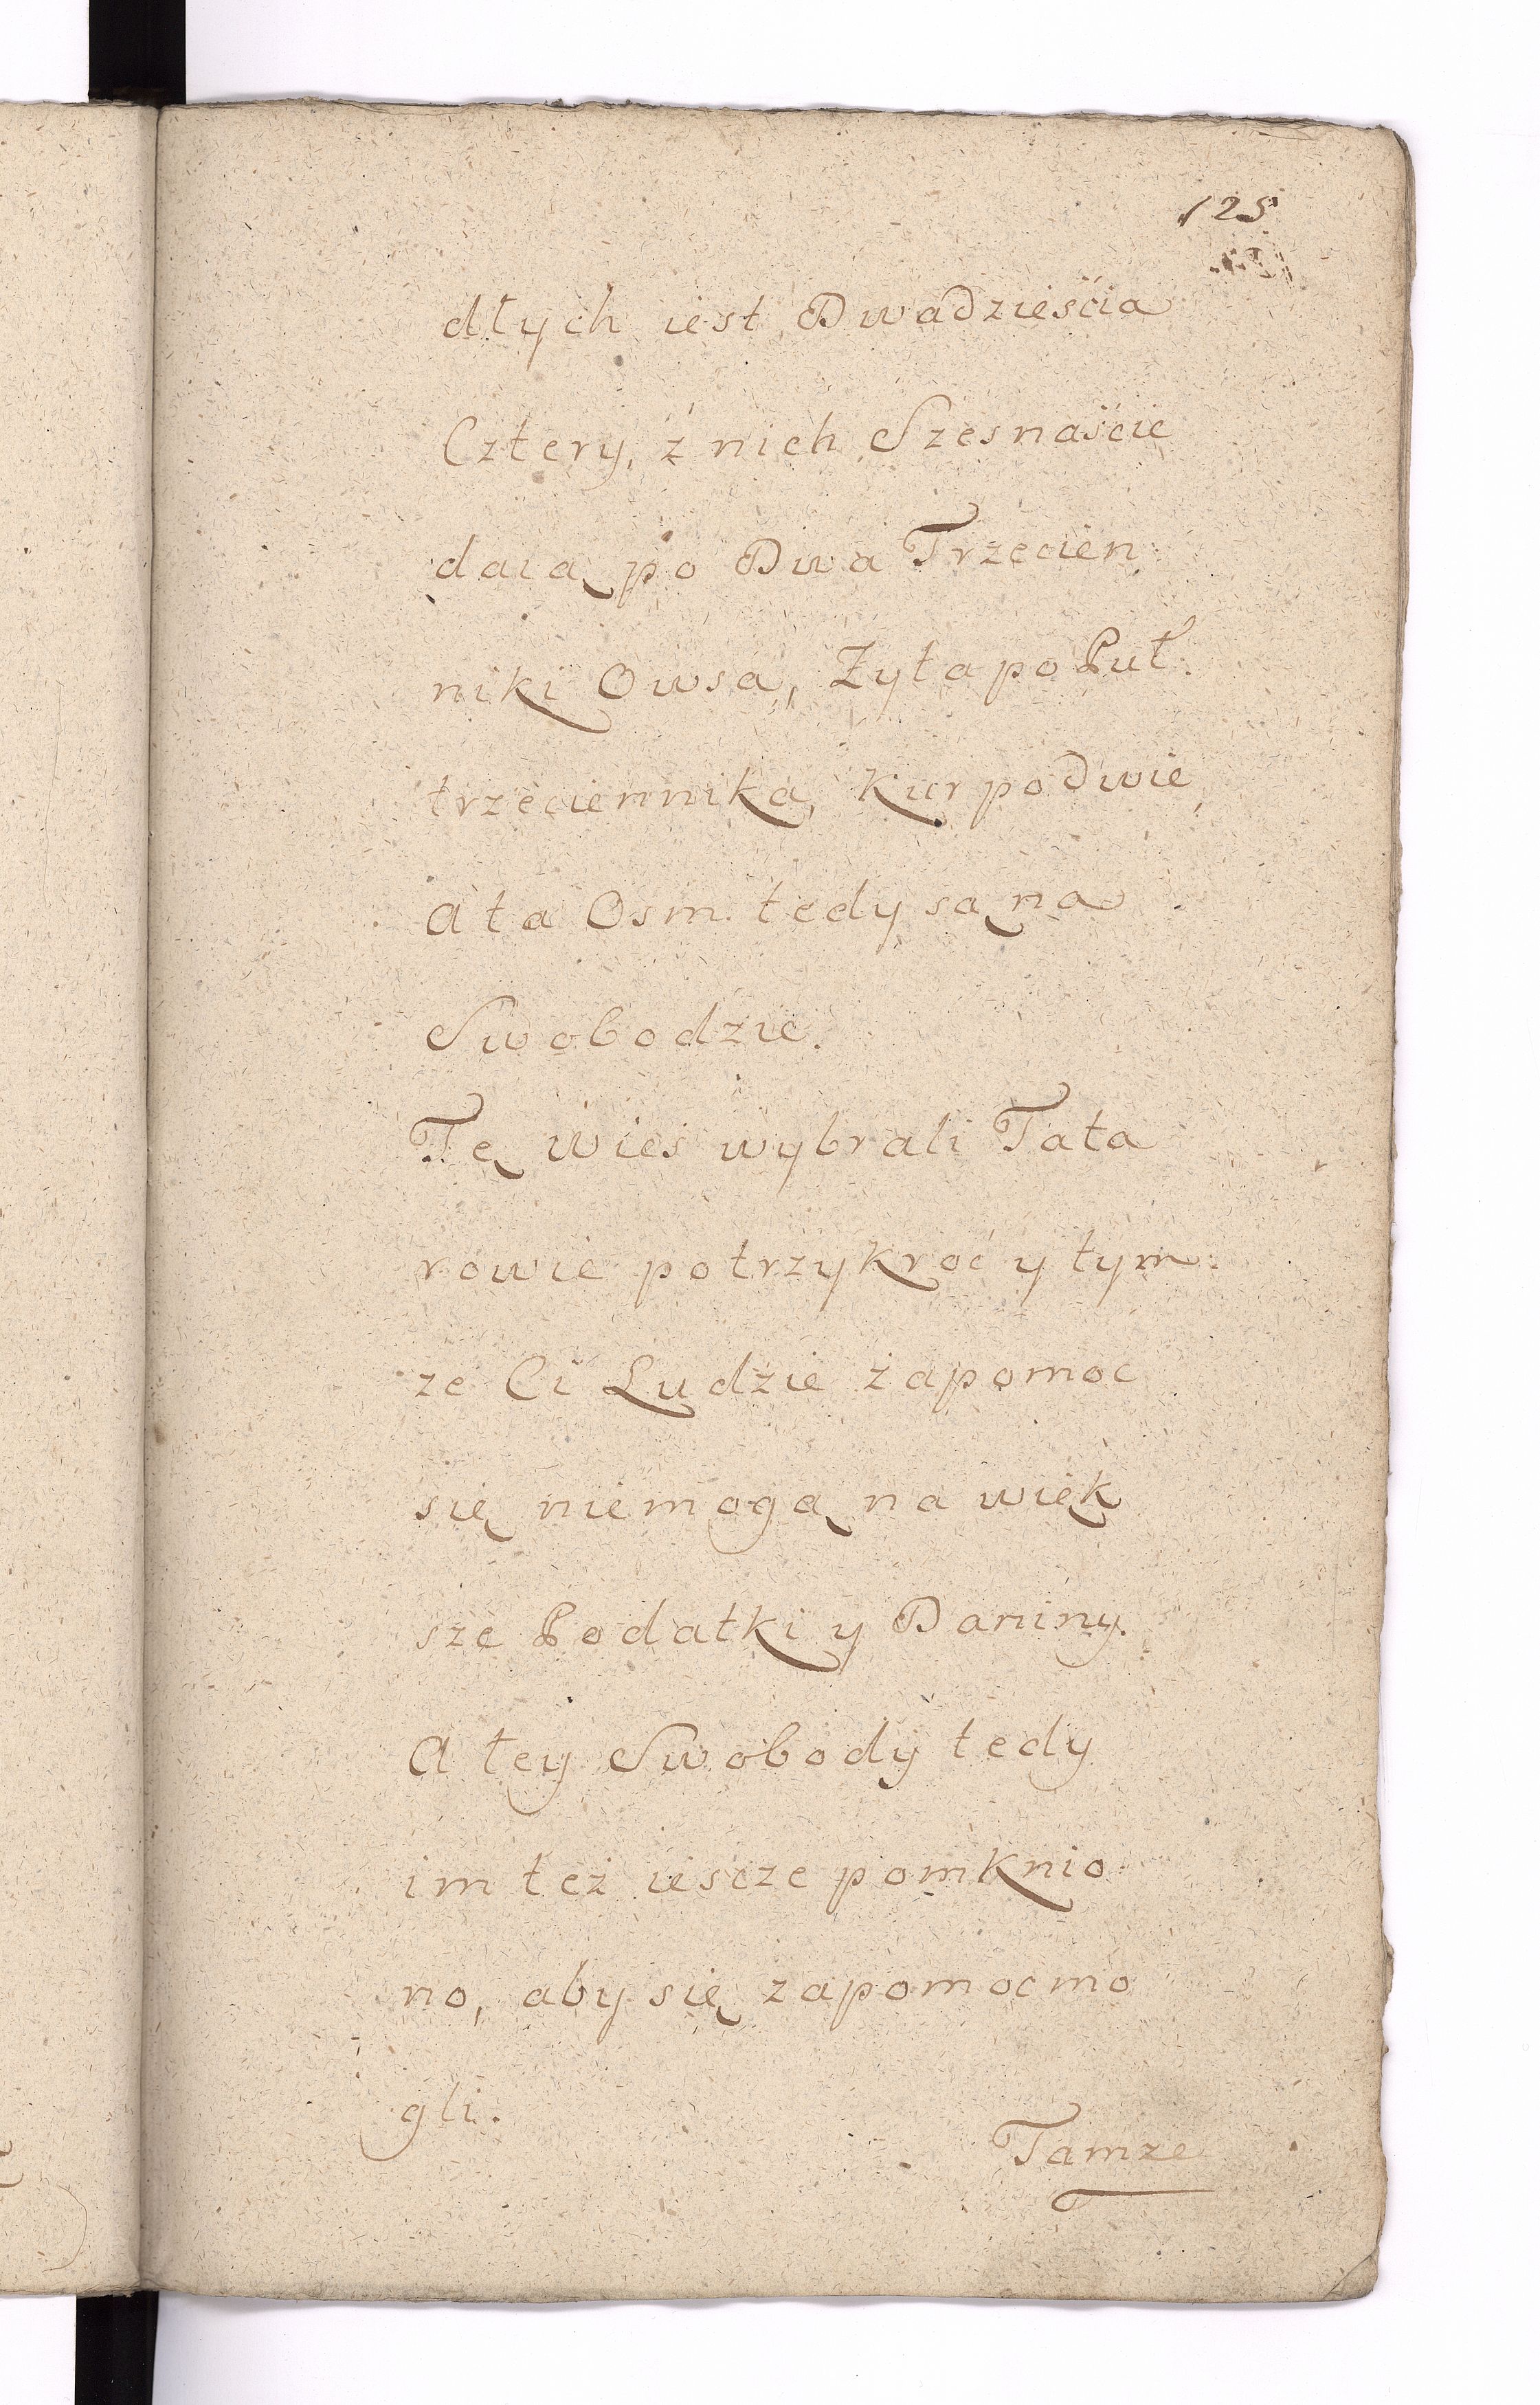 125
dłych iest Dwadzieścia
Cztery, z nich Szesnaście
daią po Dwa Trzecien
niki Owsa, Zyta po Puł
trzeciennika, Kur po dwie,
A ta Osm tedy są na
Swobodzie.
Tę wieś wybrali Tata
rowie potrzykroć y tym
ze Ci Ludzie zapomoc
się niemogą na więk
sze Podatki y Daniny.
A tey Swobody tedy
im też iescze pomknio
no, aby się zapomoc mo
gli.
Tamze